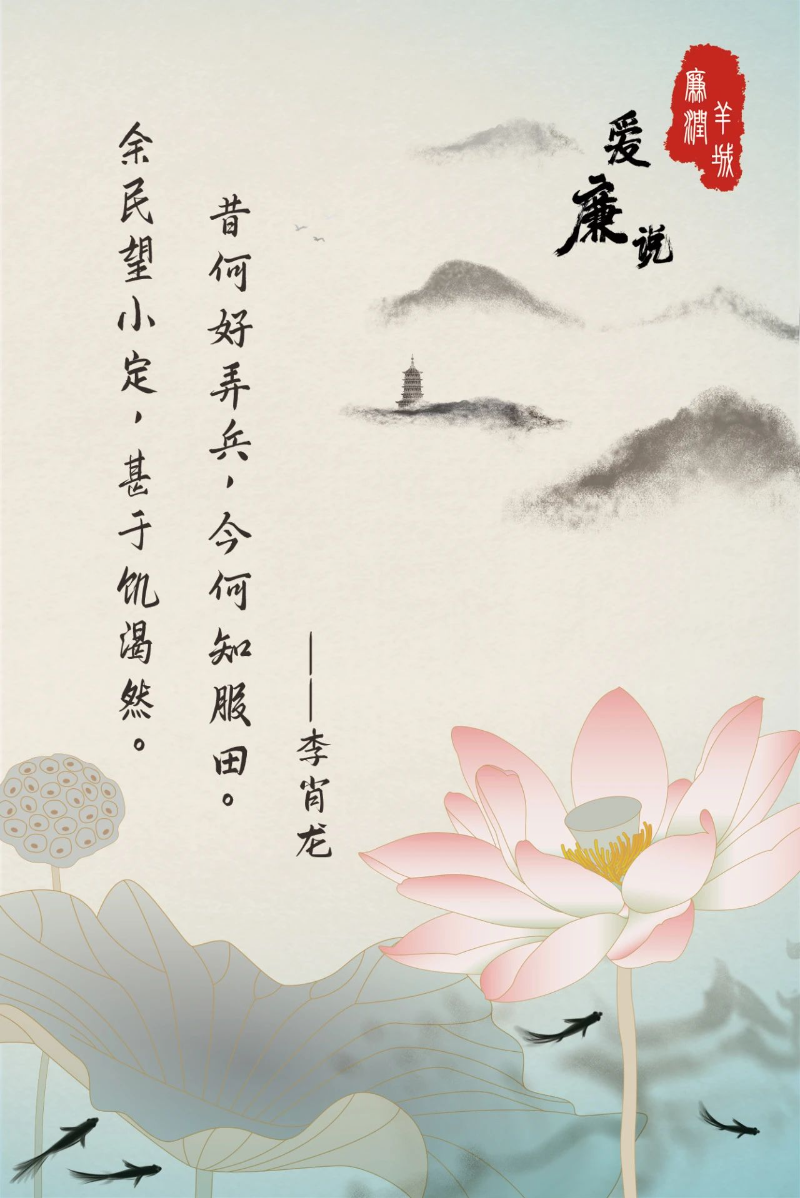 廉潤
羊城
爱廉说
——李肖龙
昔何好弄兵，今何知服田。
余民望小定，甚于饥渴然。